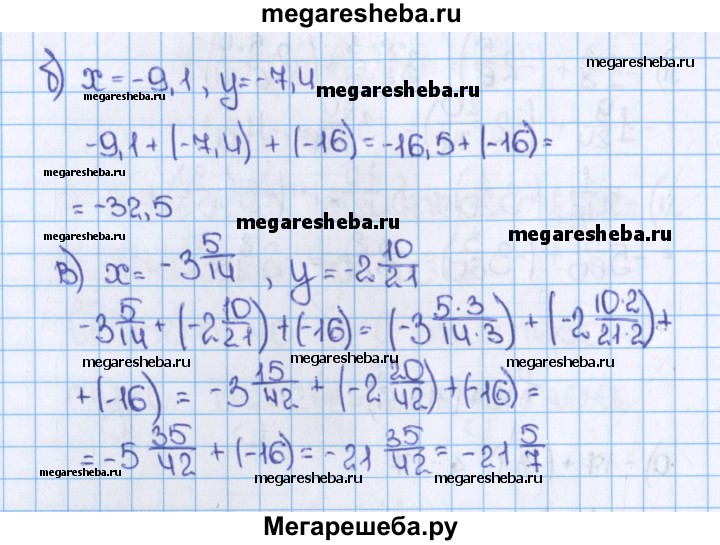 megaresheba.ru
б) x = -9,1 , y = -7,4
megaresheba.ru
megaresheba.ru
megaresheba.ru
-9,1 + (-7,4) + (-16) = -16,5 + (-16) =
megaresheba.ru
= -32,5
megaresheba.ru
megaresheba.ru
megaresheba.ru
в) x = -3 5/14 , y = -2 10/21
-3 5/14 + (-2 10/21) + (-16) = (-3 5·3/14·3) + (-2 10·2/21·2) +
megaresheba.ru
megaresheba.ru
megaresheba.ru
+ (-16) = -3 15/42 + (-2 20/42) + (-16) =
= -5 35/42 + (-16) = -21 35/42 = -21 5/7
megaresheba.ru
megaresheba.ru
megaresheba.ru
Мегарешеба.ру